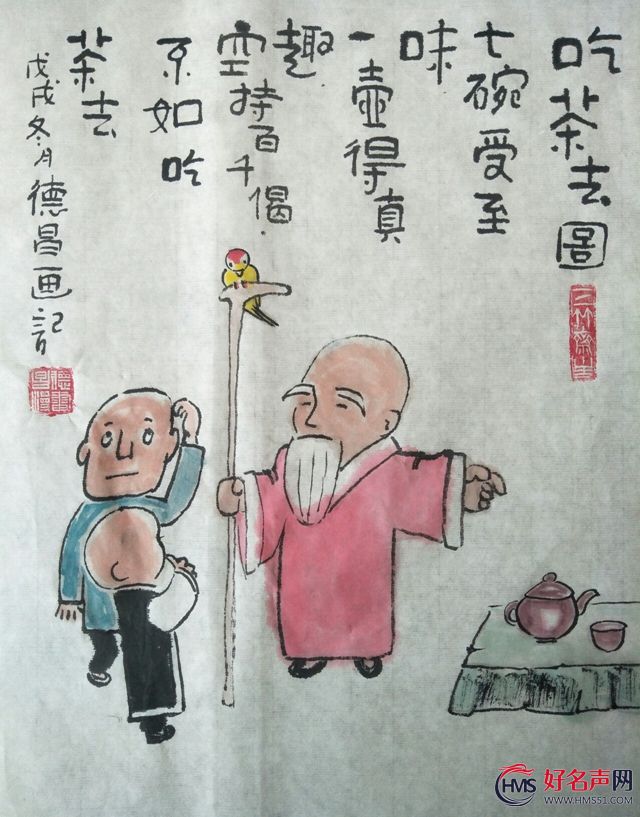 吃茶去圖
七碗受至
味
一壶得真
趣
空持百千偈
不如吃
茶去
戊戌冬月德昌画記
HMS 好名声网
WWW.HMS51.COM